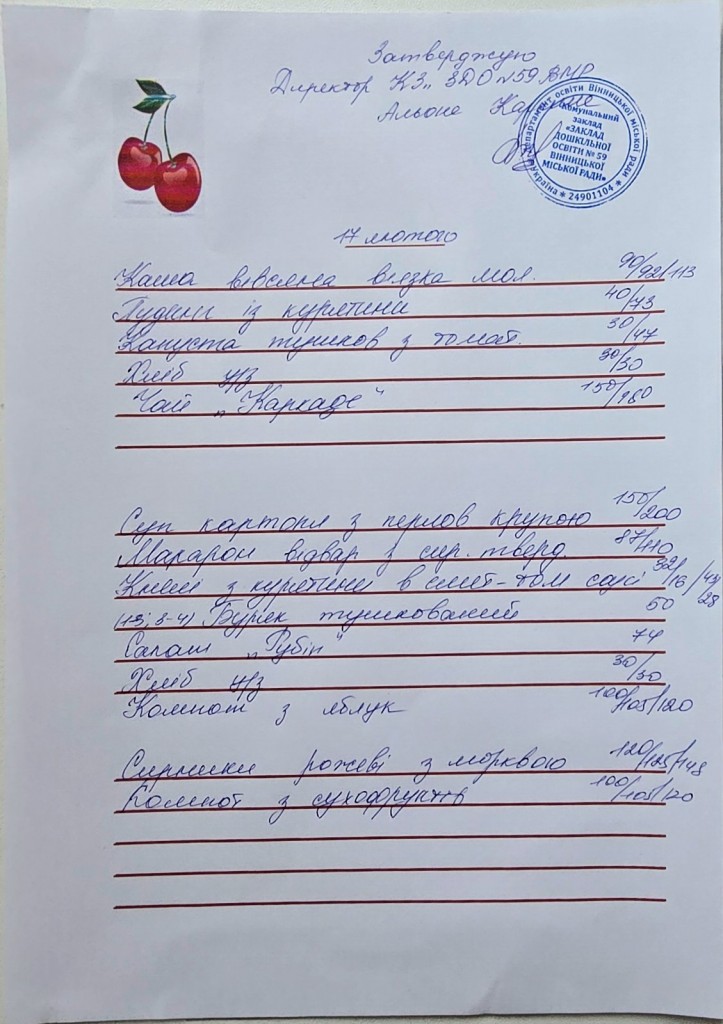 Затверджую
Директор КЗ „ЗДО №59 ВМР
Альона
Департамент освіти Вінницької міської ради
Україна * 24901104 *
Комунальний
заклад
«ЗАКЛАД
ДОШКІЛЬНОЇ
ОСВІТИ № 59
ВІННИЦЬКОЇ
МІСЬКОЇ РАДИ»
17 лютого
Каша вівсяна в'язка мол. 90/92/113
Пудинг із курятини 40/73
Капуста тушков з томат. 30/47
Хліб ц/з 30/30
Чай „Каркаде" 150/180
Суп картопл з перлов крупою 150/200
Макарон відвар з сир. тверд. 87/110
Кнелі з курятини в смет-том соусі
(1-3; 3-4) Буряк тушкований 50
Салат „Рубін" 74
Хліб ц/з 30/30
Компот з яблук 100/105/120
Сирники рожеві з морквою 120/125/148
Компот з сухофруктів 100/105/120